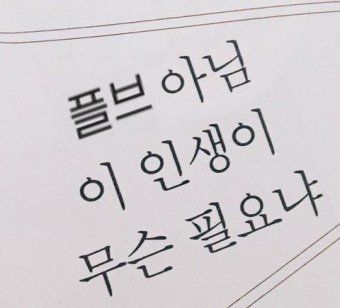 플브 아님
이 인생이
무슨 필요냐